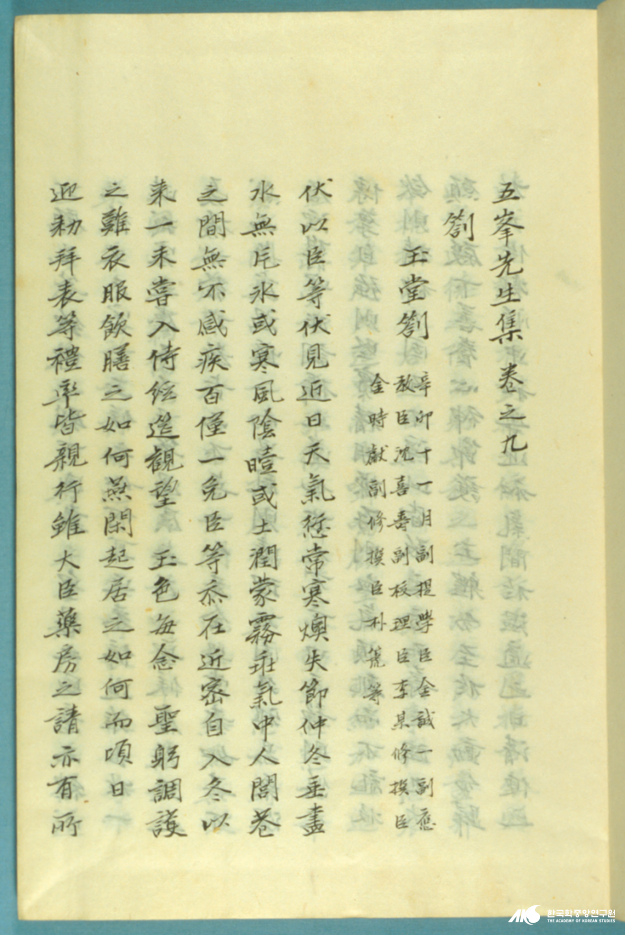 五峯先生集 卷之九
劄
玉堂劄 辛卯十一月副提學臣金誠一副應
教臣沈喜壽副校理臣李某修撰臣
金時獻副修撰臣朴篪等
伏以臣等伏見近日天氣愆常寒燠失節仲冬垂盡
水無片氷或寒風陰曀或土潤蒙霧乖氣中人閭巷
之間無不感疾百僅一免臣等忝在近密自入冬以
来一未嘗入侍經筵觀望 玉色每念 聖躬調護
之難衣服飲膳之如何燕閑起居之如何而頃日
迎勑拜表等禮率皆親行雖大臣藥房之請亦有所
한국학중앙연구원
THE ACADEMY OF KOREAN STUDIES